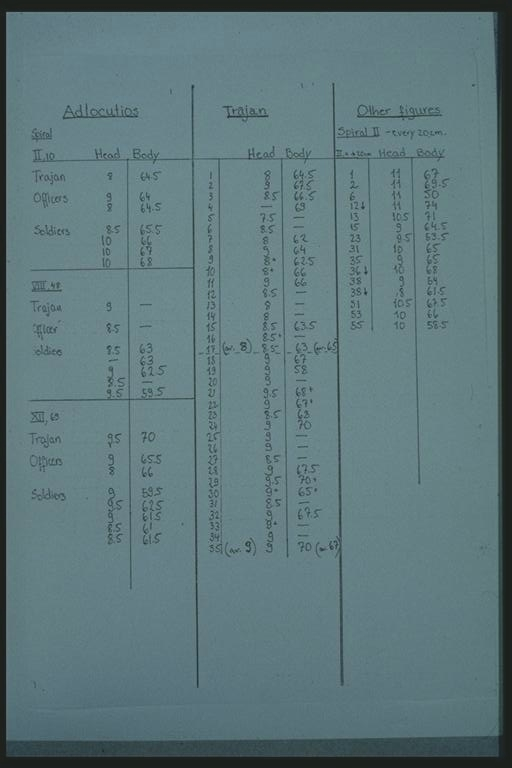 Adlocutios
Spiral
II,10 Head Body
Trajan 8 64.5
Officers 9 64
8 64.5
Soldiers 8.5 65.5
10 66
10 67
10 68
VIII,48
Trajan 9 —
Officer 8.5 —
Soldiers 8.5 63
— 63
9 62.5
8.5 —
9.5 59.5
XII,69
Trajan 9.5 70
Officers 9 65.5
8 66
Soldiers 9 59.5
9.5 62.5
9 61.5
8.5 61
8.5 61.5
Trajan
Head Body
1 8 64.5
2 9 67.5
3 8.5 66.5
4 — 69
5 7.5 —
6 8.5 —
7 8 62
8 9 64
9 8+ 62.5
10 8+ 66
11 9 66
12 8.5 —
13 8 —
14 8 —
15 8.5 63.5
16 8.5+ —
17 (av. 8) 8.5 63 (av. 65
18 9 67
19 9 58
20 9 —
21 9.5 68+
22 9 67+
23 8.5 63
24 9 70
25 9 —
26 9 —
27 8.5 —
28 9 67.5
29 9.5 70+
30 9+ 65+
31 8.5 —
32 9 67.5
33 9+ —
34 9 —
35 (av. 9) 9 70 (av. 67)
Other figures
Spiral II - every 20cm.
Head Body
1 11 67
2 11 69.5
6 11 50
12↓ 11 74
13 10.5 71
15 9 64.5
23 9.5 53.5
31 10 65
35 9 65
36↓ 10 68
38 9 64
38↓ 8 61.5
51 10.5 67.5
53 10 66
55 10 58.5